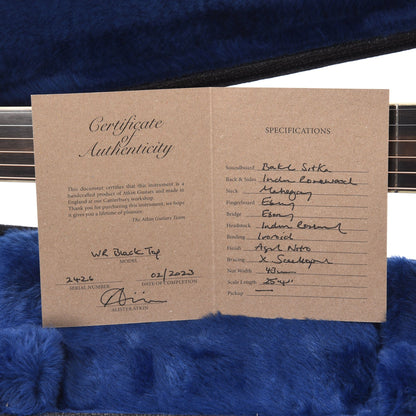 Certificate
of
Authenticity
This document certifies that this instrument is a
handcrafted product of Atkin Guitars and made in
England at our Canterbury workshop.
Thank you for purchasing this instrument, we hope
it gives you a lifetime of pleasure.
The Atkin Guitars Team
WR Black Top
MODEL
2426 02/2023
SERIAL NUMBER DATE OF COMPLETION
ALISTER ATKIN
SPECIFICATIONS
Soundboard Sitka
Back & Sides Indian Rosewood
Neck Mahogany
Fingerboard Ebony
Bridge Ebony
Headstock Indian Rosewood
Binding Ivoroid
Finish Aged Nitro
Bracing X Scalloped
Nut Width
Scale Length
Pickup —